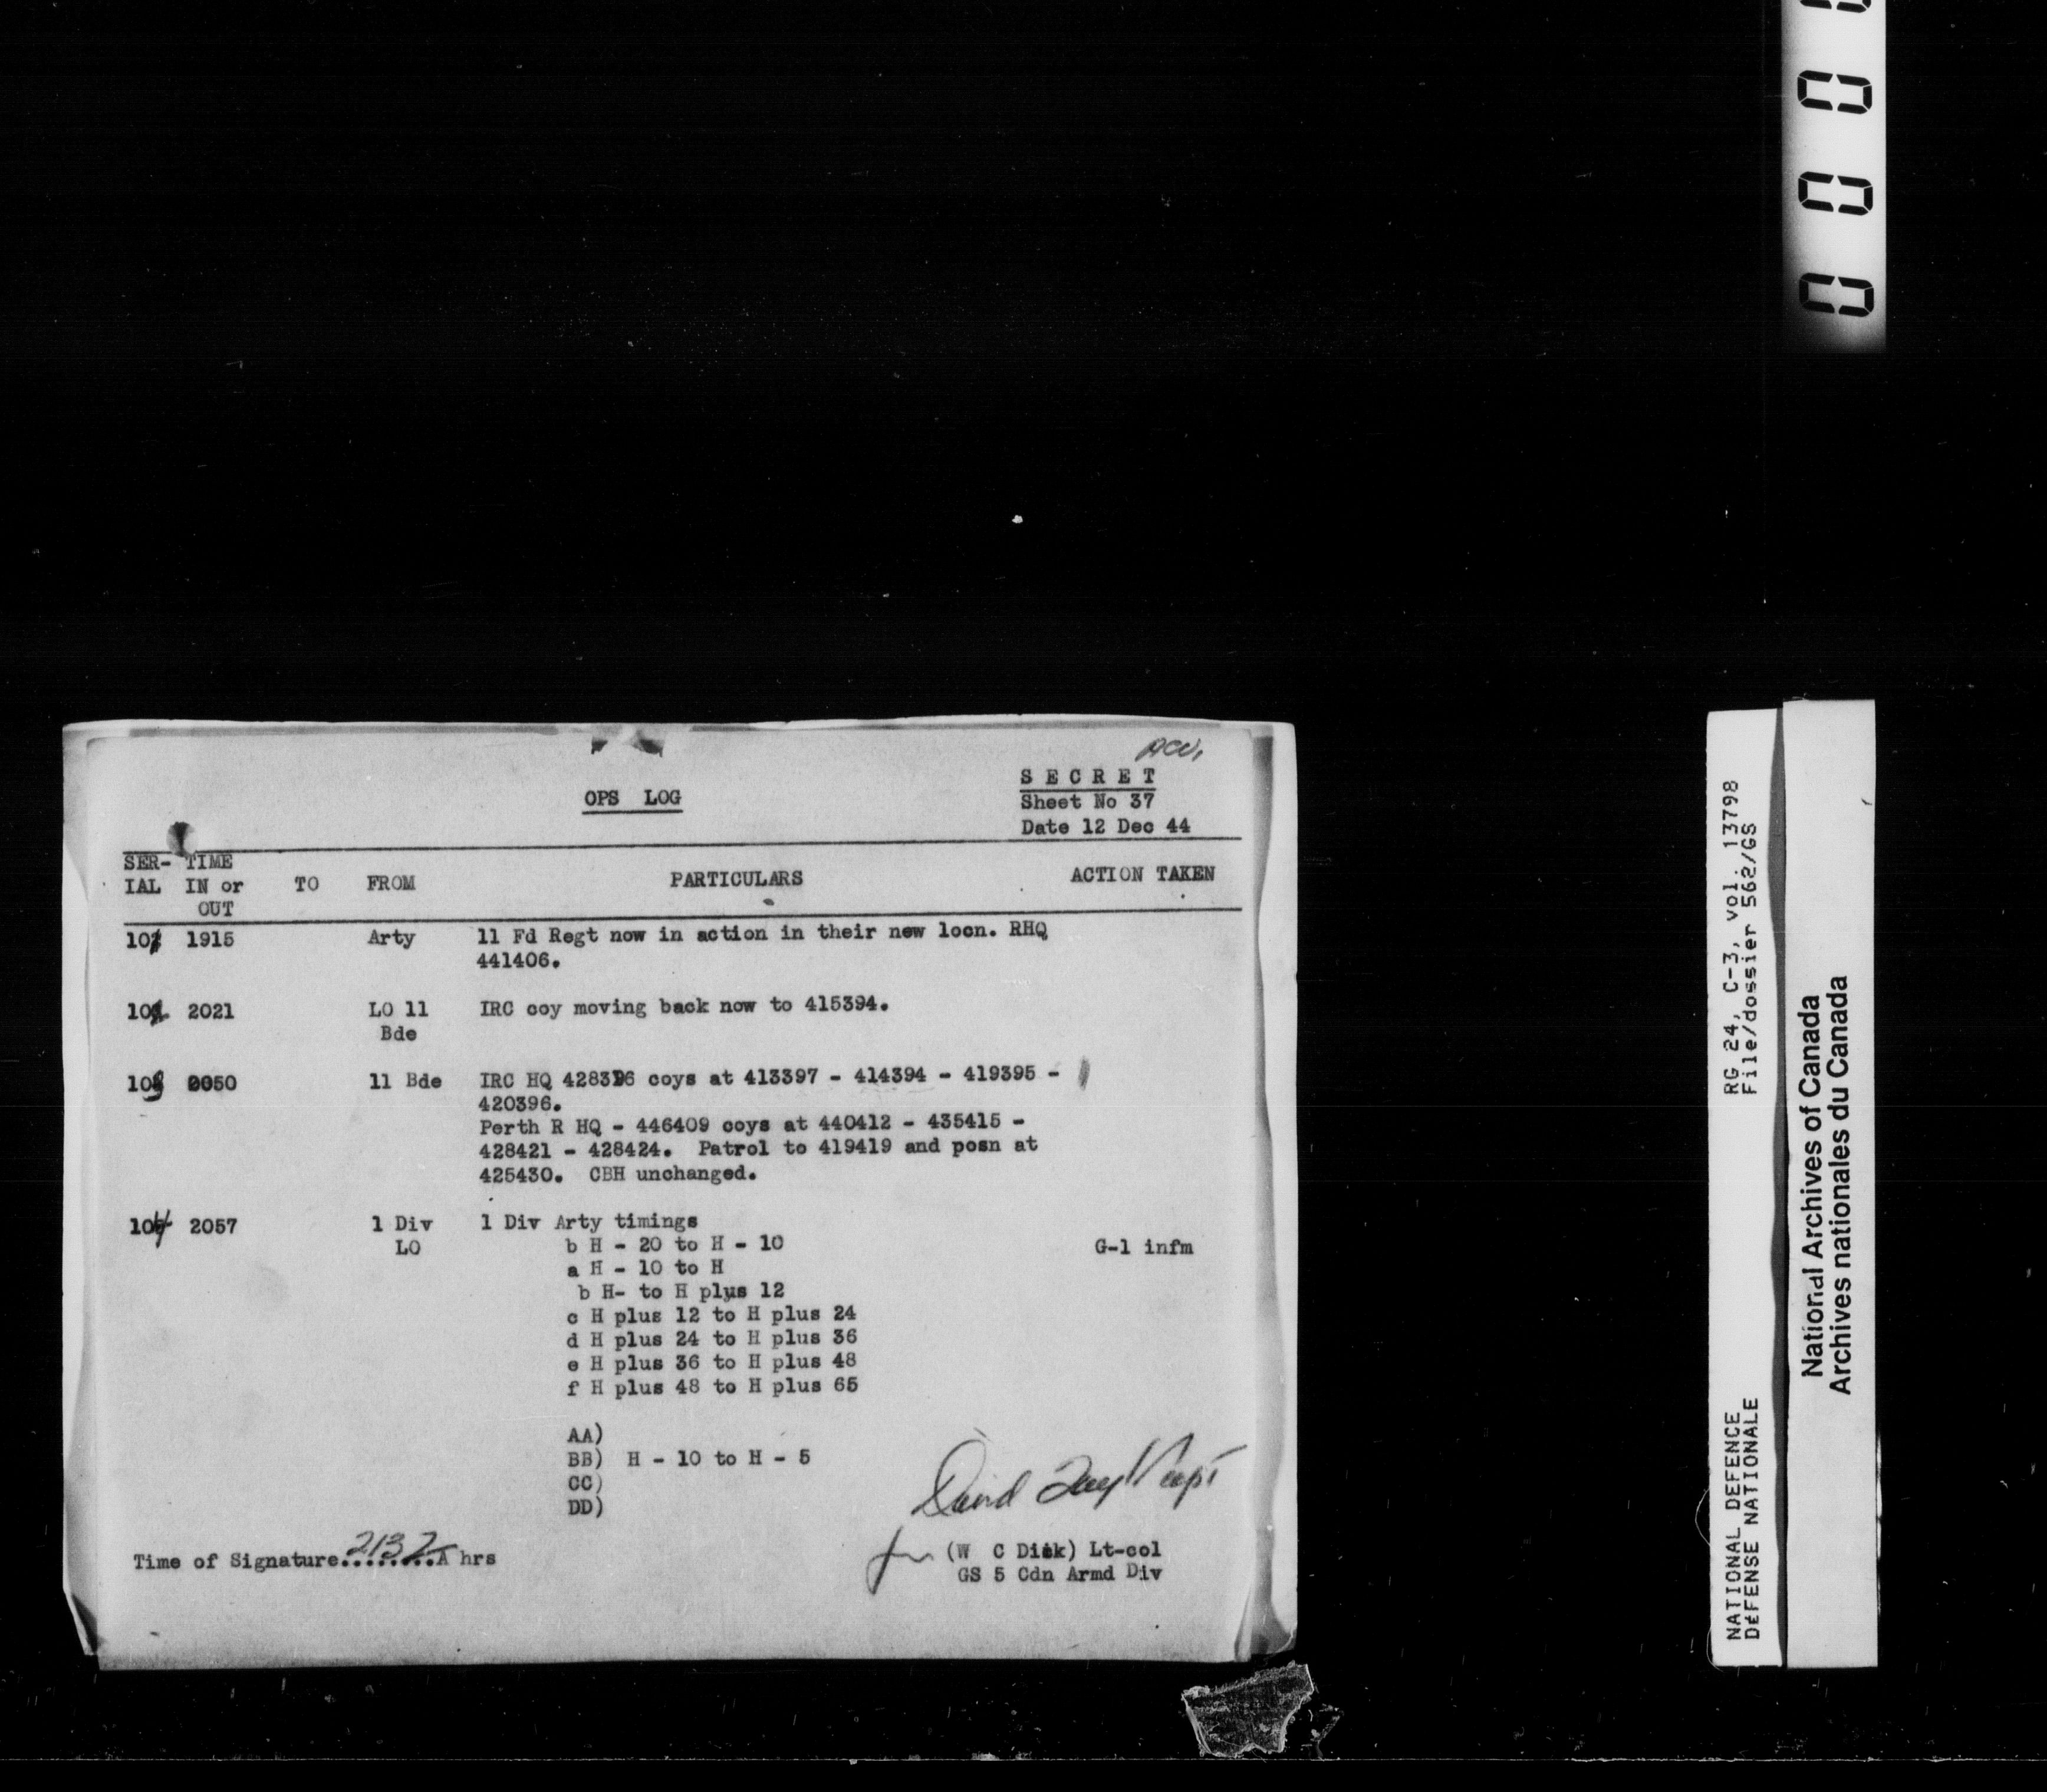 ACV,
S E C R E T
OPS LOG
Sheet No 37
Date 12 Dec 44
SER- TIME
IAL IN or TO FROM PARTICULARS ACTION TAKEN
OUT
1915 Arty 11 Fd Regt now in action in their new locn. RHQ
441406.
2021 LO 11 IRC coy moving back now to 415394.
Bde
103 2050 11 Bde IRC HQ 428396 coys at 413397 - 414394 - 419395 -
420396.
Perth R HQ - 446409 coys at 440412 - 435415 -
428421 - 428424. Patrol to 419419 and posn at
425430. CBH unchanged.
104 2057 1 Div 1 Div Arty timings
LO b H - 20 to H - 10 G-1 infm
a H - 10 to H
b H- to H plus 12
c H plus 12 to H plus 24
d H plus 24 to H plus 36
e H plus 36 to H plus 48
f H plus 48 to H plus 65
AA)
BB) H - 10 to H - 5
CC)
DD)
David Capt
Time of Signature 2132 A hrs
for (W C Dick) Lt-col
GS 5 Cdn Armd Div
0 0 0
RG 24, C-3, vol. 13798
File/dossier 562/GS
NATIONAL DEFENCE
DÉFENSE NATIONALE
National Archives of Canada
Archives nationales du Canada